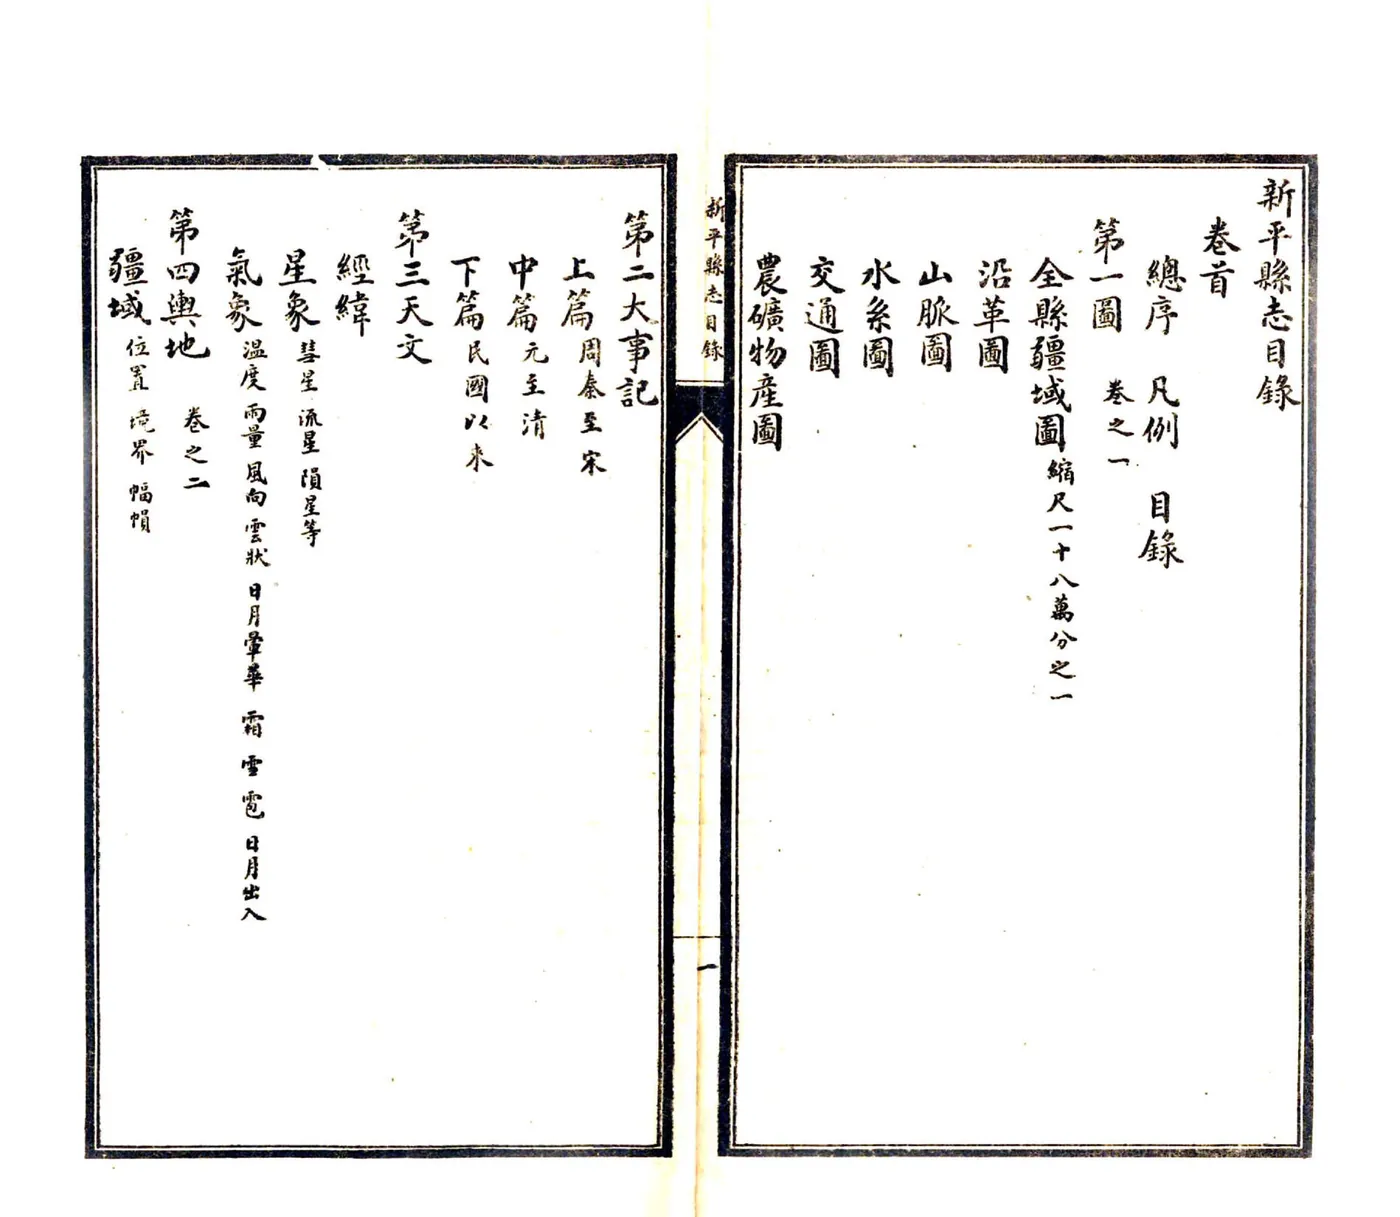 新平縣志目錄
卷首
總序 凡例 目錄
第一圖 卷之一
全縣疆域圖 縮尺一十八萬分之一
沿革圖
山脈圖
水系圖
交通圖
農礦物產圖
新平縣志目錄
一
第二大事記
上篇 周秦至宋
中篇 元至清
下篇 民國以來
第三天文
經緯
星象 彗星 流星 隕星等
氣象 溫度 雨量 風向 雲狀 日月暈華 霜 雪 雹 日月出入
第四輿地 卷之二
疆域 位置 境界 幅幀